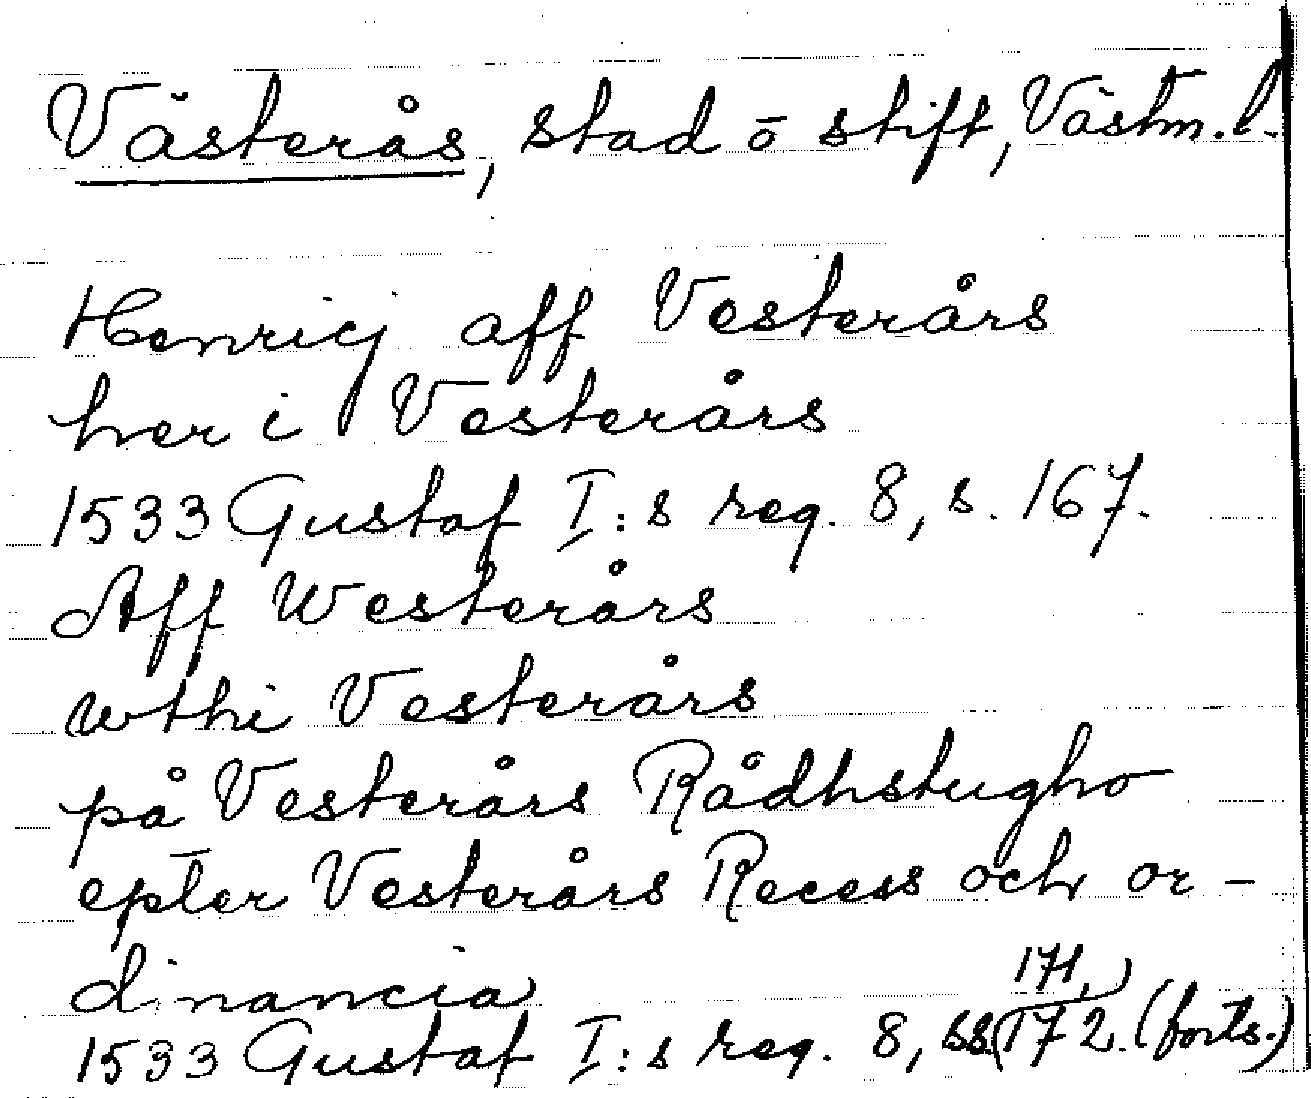 Västerås, stad o stift, Västm. l.
Henricj aff Vesterårs
her i Vesterårs
1533 Gustaf I:s reg. 8, s. 167.
Aff Westerårs
wthi Vesterårs
på Vesterårs Rådhstugho
epter Vesterårs Recess och or-
dinancia
1533 Gustaf I:s reg. 8, ss. (171,) 172. (forts.)